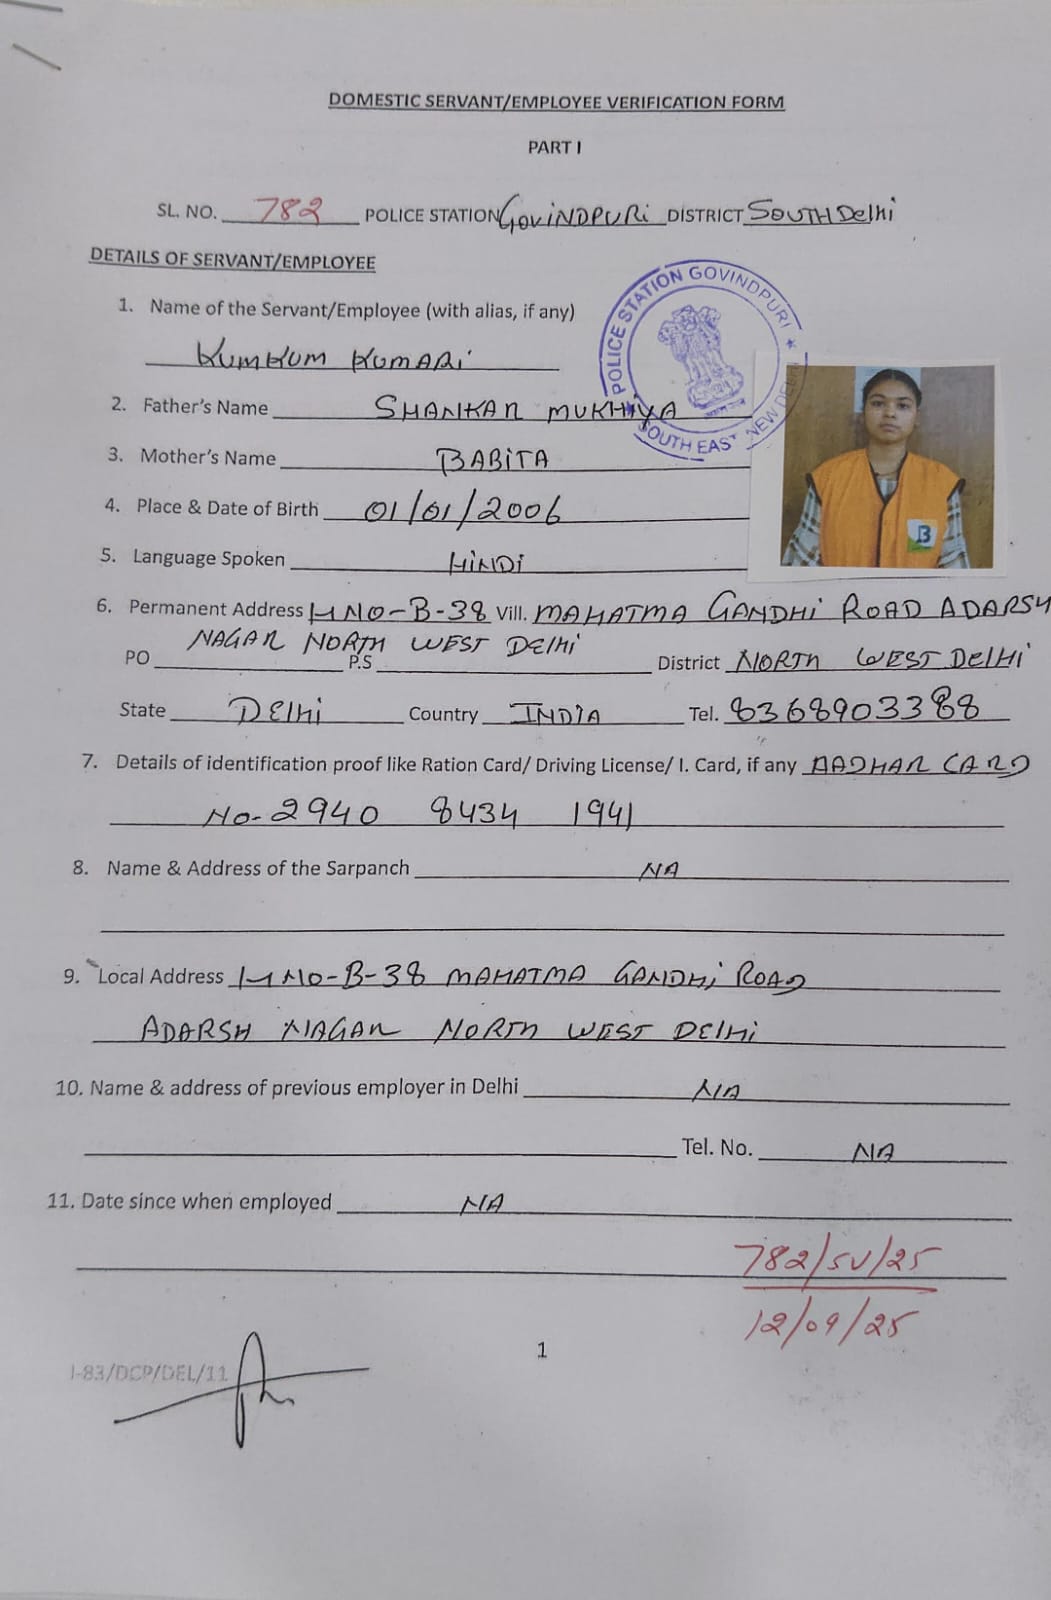 DOMESTIC SERVANT/EMPLOYEE VERIFICATION FORM
PART I
SL. NO. 782 POLICE STATION GOVINDPURI DISTRICT SOUTH Delhi
DETAILS OF SERVANT/EMPLOYEE
POLICE STATION GOVINDPURI ★ SOUTH EAST NEW DELHI
1. Name of the Servant/Employee (with alias, if any)
KUMKUM KUMARI
2. Father's Name SHANKAR MUKHIYA
3. Mother's Name BABITA
4. Place & Date of Birth 01/01/2006
5. Language Spoken HINDI
B
6. Permanent Address H NO-B-38 Vill. MAHATMA GANDHI ROAD ADARSH
NAGAR NORTH WEST DELHI
PO P.S District NORTH WEST DELHI
State DELHI Country INDIA Tel. 8368903388
7. Details of identification proof like Ration Card/ Driving License/ I. Card, if any AADHAR CARD
No-2940 8434 1941
8. Name & Address of the Sarpanch NA
9. Local Address H NO-B-38 MAHATMA GANDHI ROAD
ADARSH NAGAR NORTH WEST DELHI
10. Name & address of previous employer in Delhi NA
Tel. No. NA
11. Date since when employed NA
782/SV/25
12/09/25
1
I-83/DCP/DEL/11